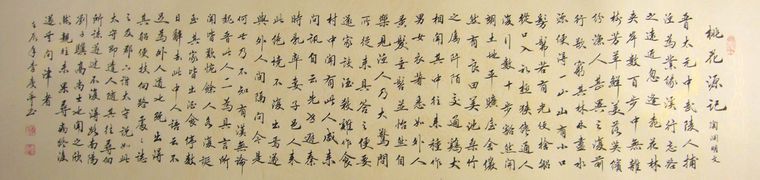 桃花源记 陶渊明文
晋太元中武陵人捕
鱼為業緣溪行忘路
之遠近忽逢桃花林
夹岸數百步中無雜
树芳草鮮美落英繽
纷漁人甚異之復前
行欲窮其林林盡水
源便得一山山有小口
髣髴若有光便捨船
從口入初極狹纔通人
復行數十步豁然開
朗土地平曠屋舍儼
然有良田美池桑竹
之屬阡陌交通雞犬
相聞其中往來種作
男女衣著悉如外人
黃髮垂髫並怡然自
樂見漁人乃大驚問
所從來具答之便要
還家設酒殺雞作食
村中聞有此人咸來
問訊自云先世避秦
時亂率妻子邑人來
此絕境不復出焉遂
與外人間隔問今是
何世乃不知有漢無論
魏晉此人一一為具言所
聞皆歎惋餘人各復延
至其家皆出酒食停數
日辭去此中人語云不
足為外人道也既出得
其船便扶向路處處誌
之及郡下詣太守說如此
太守即遣人隨其往尋向
所誌遂迷不復得路南陽
劉子驥高尚士也聞之欣
然規往未果尋病終後
遂無問津者
壬辰年李